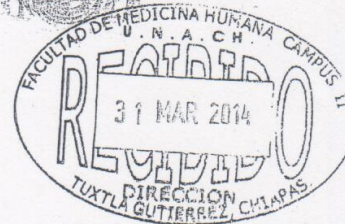 FACULTAD DE MEDICINA HUMANA CAMPUS II
U.N.A.CH.
RECIBIDO
31 MAR 2014
DIRECCION
TUXTLA GUTIERREZ CHIAPAS